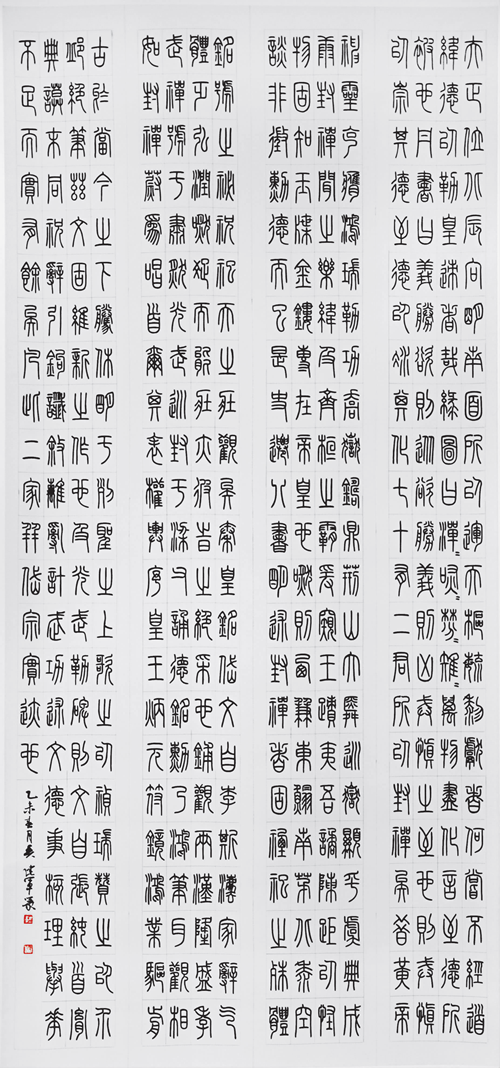 夫正位北辰向明南面所以運天樞毓黎獻者何嘗不經道
緯德以勒皇蹟者哉綠圖曰潬〃噅〃棼〃雉〃萬物盡化言至德所
被也丹書曰義勝欲則從欲勝義則凶戒慎之至也則戒慎
以崇其德至德以凝其化七十有二君所以封禪矣昔黃帝
神靈克膺鴻瑞勒功喬嶽鑄鼎荊山大舜巡嶽顯乎虞典成
康封禪聞之樂緯及齊桓之霸爰窺王蹟夷吾譎陳距以怪
物固知玉牒金鏤專在帝皇也然則西鶼東鰈南茅北黍空
談非徵勳德而已是史遷八書明述封禪者固禋祀之殊禮
銘號之祕祝祀天之壯觀矣秦皇銘岱文自李斯法家辭氣
體乏弘潤然疏而能壯亦彼時之絕采也鋪觀兩漢隆盛孝
武禪號于肅然光武巡封于梁父誦德銘勳乃鴻筆耳觀相
如封禪蔚為唱首爾其表權輿序皇王炳元符鏡鴻業驅前
古於當今之下騰休明于列聖之上歌之以禎瑞贊之以介
丘絕筆茲文固維新之作也及光武勒碑則文自張純首胤
典謨末同祝辭引鉤讖敘離亂計武功述文德事核理舉華
不足而實有餘矣凡此二家並岱宗實跡也
乙未春月 建軍篆